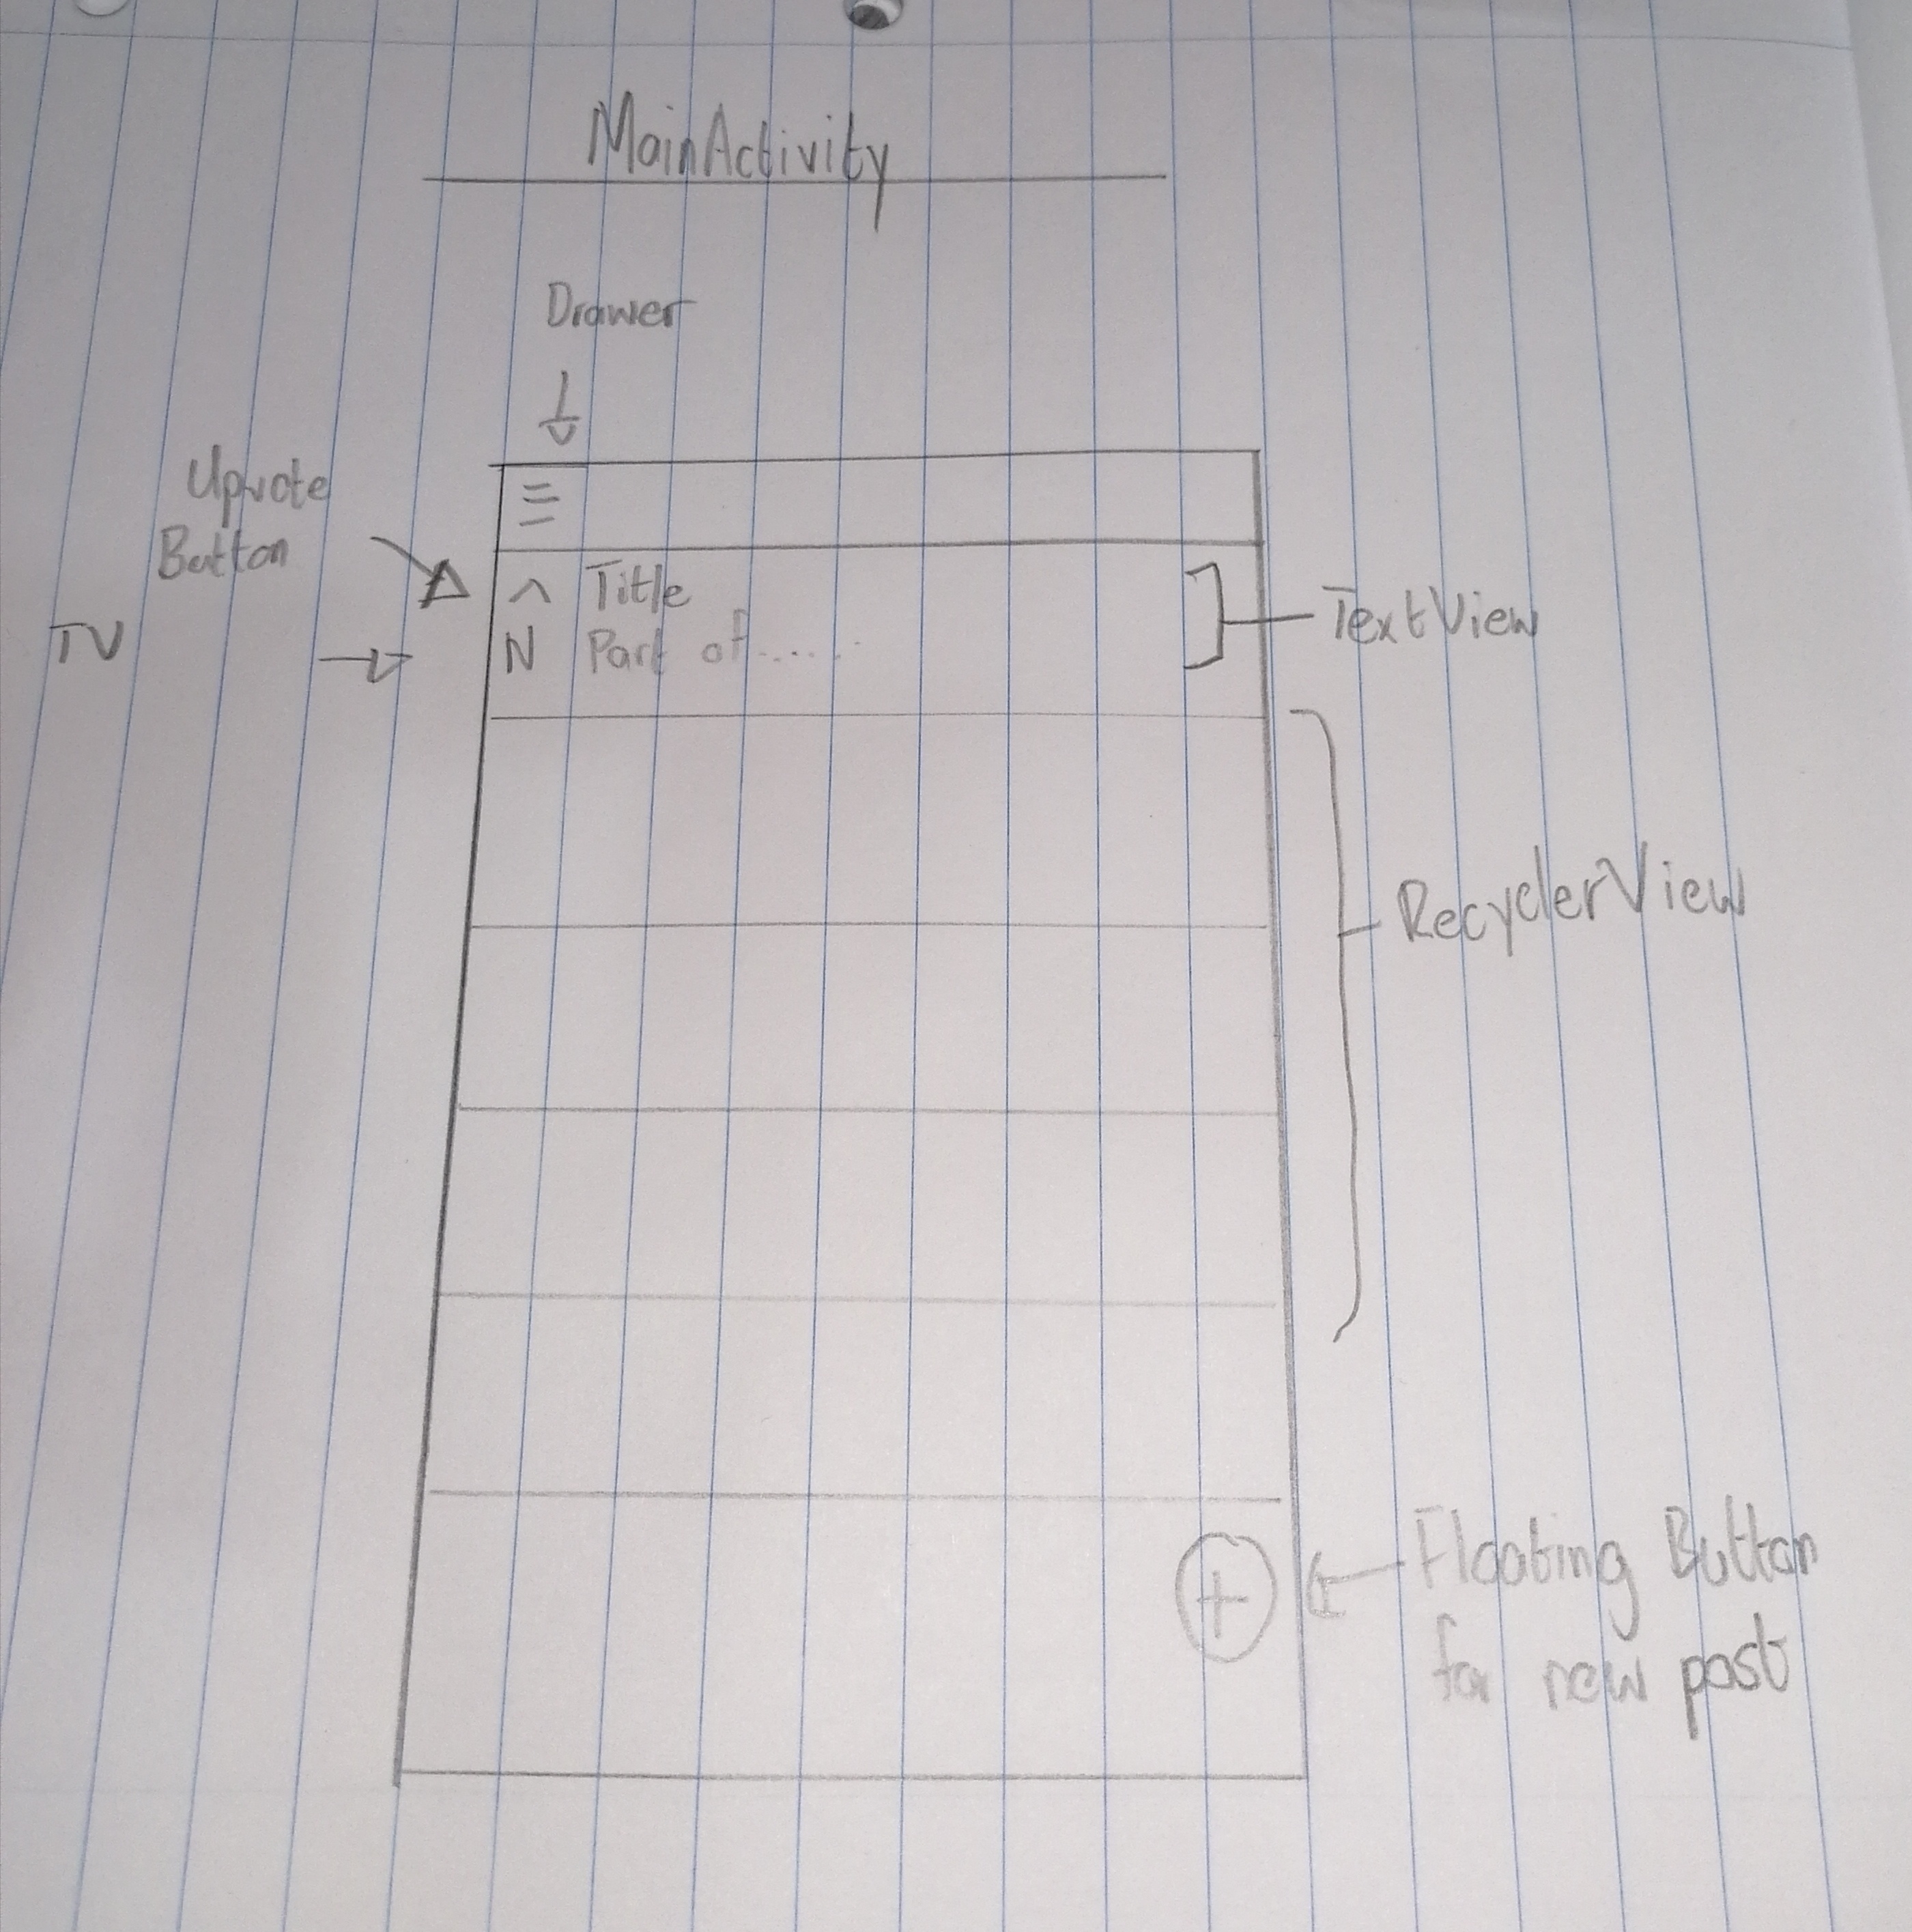 MainActivity
Drawer
Upvote
Button
^ Title
TV
N Part of......
TextView
RecyclerView
+
Floating Button
for new post